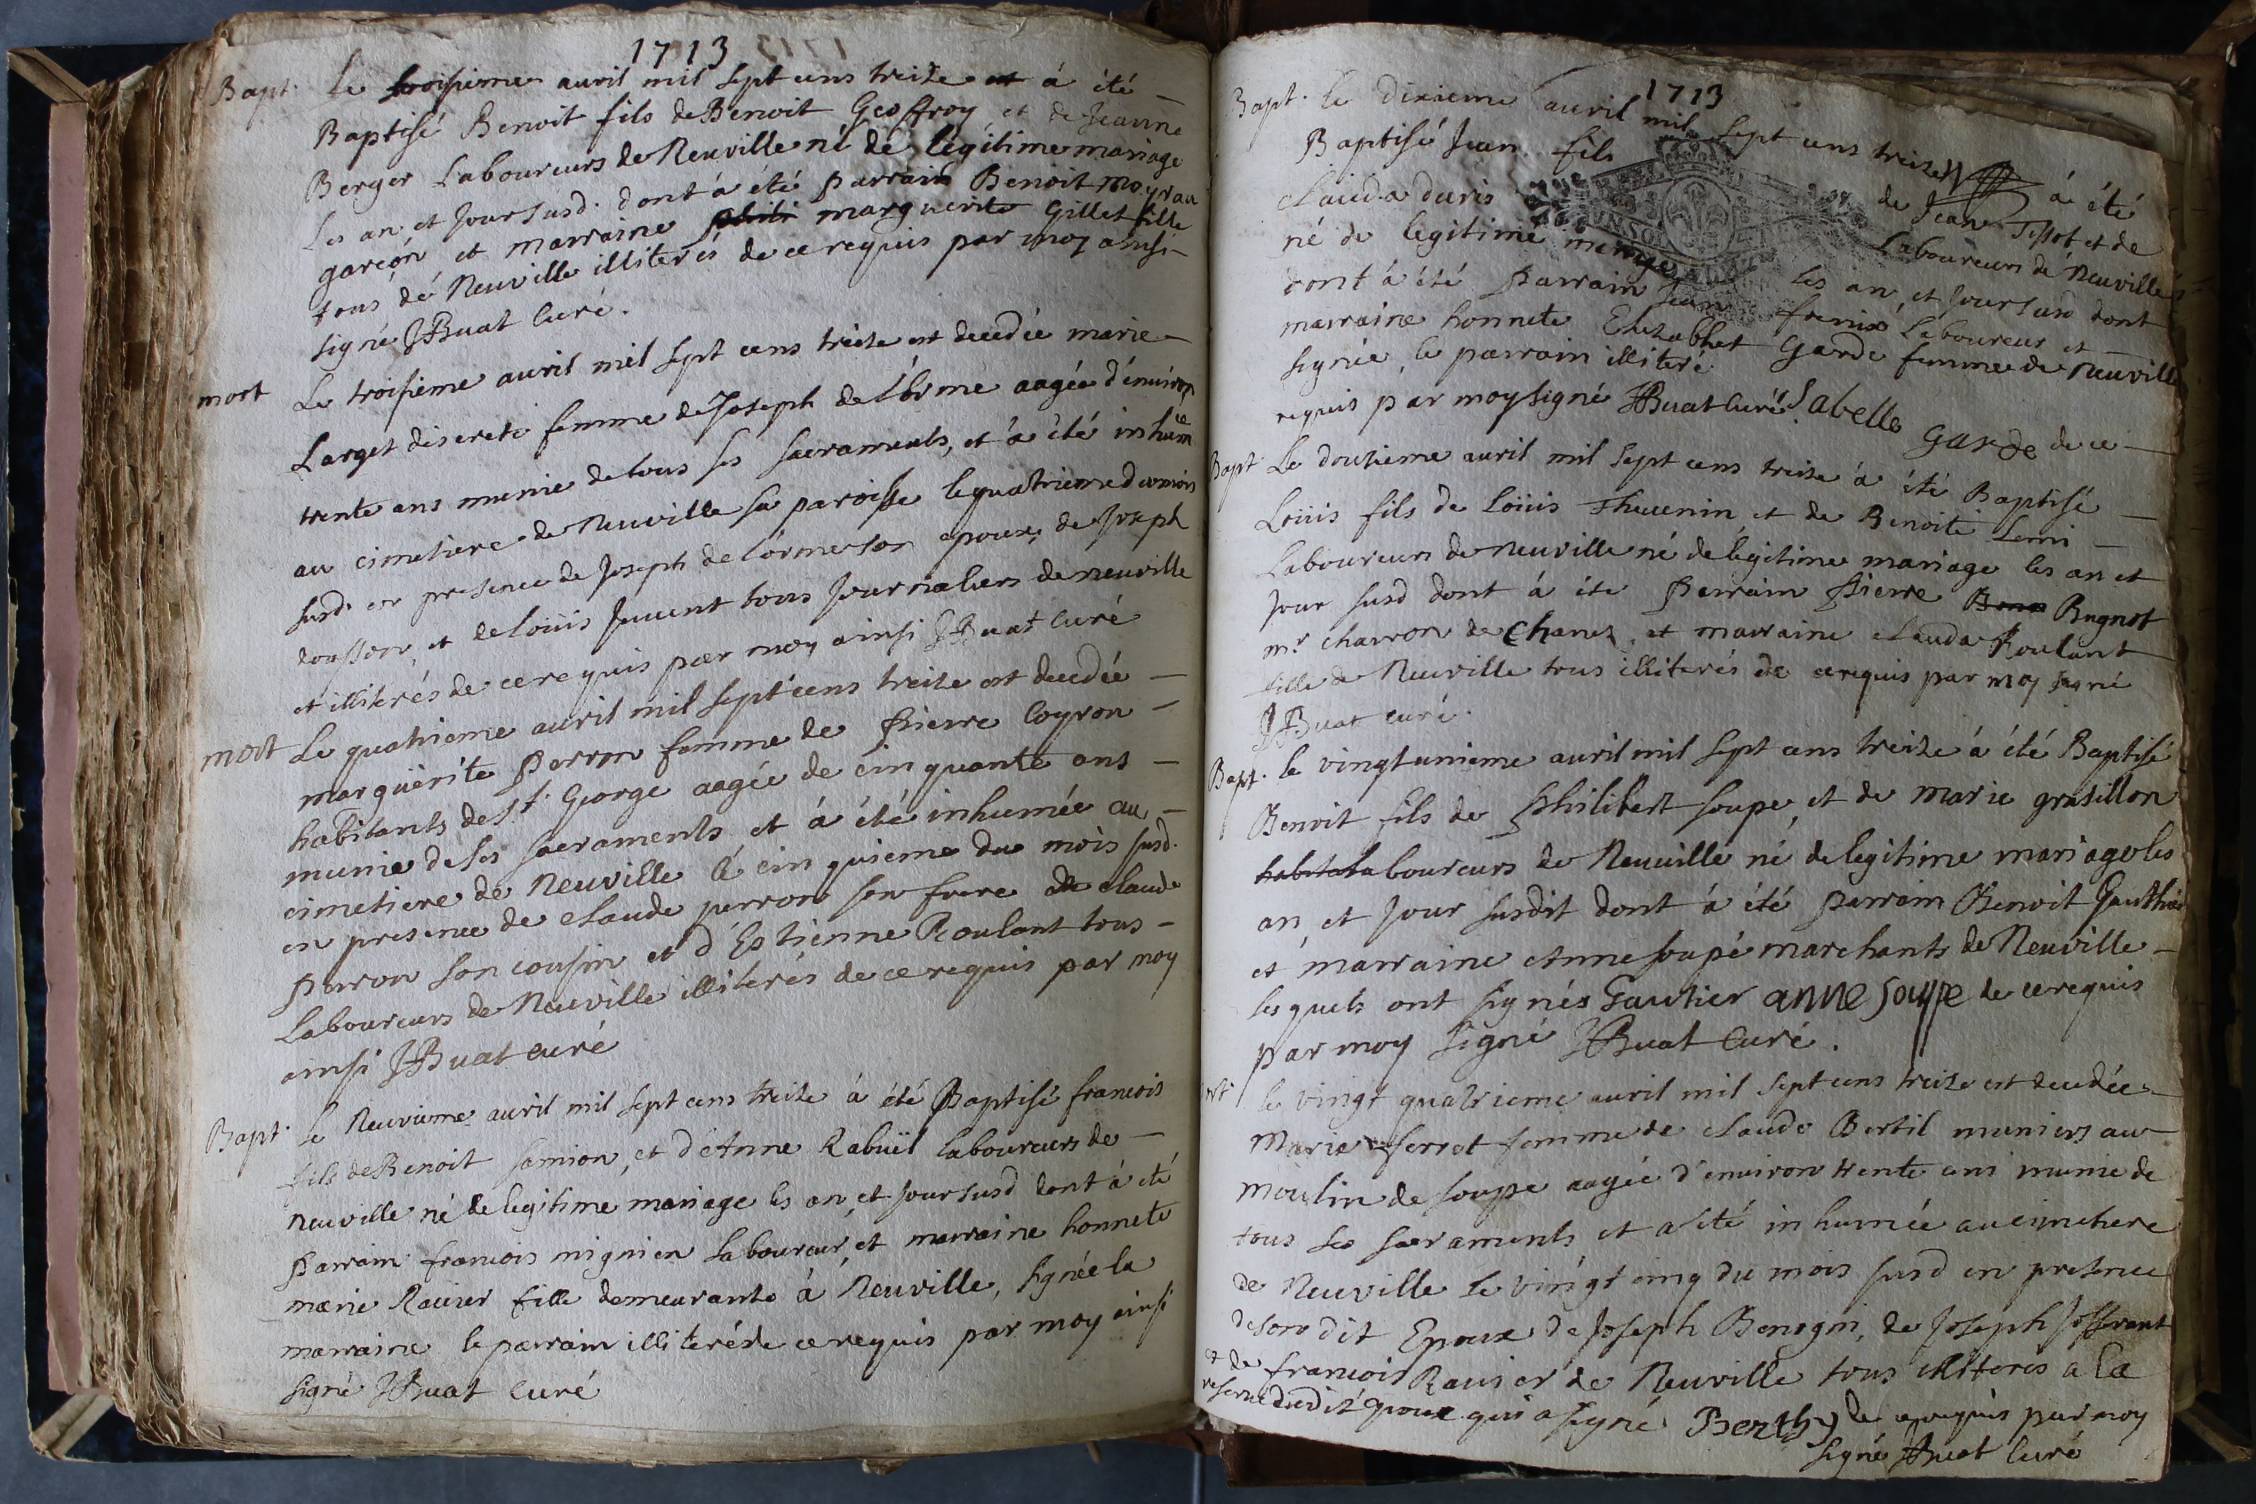 1713
Bapt. le troisieme avril mil sept cens treize à été
Baptisé Benoit fils de Benoit Geoffroy et de Jeanne
Berger Laboureurs de Neuville né de legitime mariage
Les an et Jour susd. dont à été parrain Benoit Moyrau
garçon et marraine marguerite Gillet fille
tous de Neuville illiterés de ce requis par moy ainsi
signé JBuat Curé.
mort Le troisieme avril mil sept cens treize est decedée marie
Larget discrete femme de Joseph de Lorme aagée d'environ
trente ans munie de tous ses sacraments, et à été inhumée
au cimetiere de Neuville sa paroisse le quatrieme du mois
susd. en presence de Joseph de Lorme son epoux, de Joseph
et de Loüis Juvent tous journaliers de neuville
et illiterés de ce requis par moy ainsi JBuat Curé
mort Le quatrieme avril mil sept cens treize est decedée
marguerite Perron femme de Pierre Coyron
habitants de St. George aagée de cinquante ans
munie de ses sacraments et à été inhumée au
cimetiere de Neuville le cinquieme du mois susd.
en presence de claude perron son frere de claude
perron son cousin et d'Estienne Roulant tous
Laboureurs de Neuville illiterés de ce requis par moy
ainsi JBuat curé
Bapt. le Neuvieme avril mil sept cens treize à été Baptisé francois
fils de Benoit Samion, et d'Anne Rabuël laboureurs de
neuville né de legitime mariage les an, et Jour susd dont à été
parrain francois mignien laboureur, et marraine honnete
marie Ravier fille demeurante à Neuville, signée la
marraine le parrain illiteré de ce requis par moy ainsi
signé JBuat Curé
1713
Bapt. le dixieme avril mil sept cens treize à été
Baptisé Jean fils de Jean Tissot et de
Clauda duris Laboureurs de Neuville
né de legitime mariage les an, et Jour susd dont
dont à été parrain Jean Laboureur et
marraine honnete Elizabhet Garde femme de neuville
signée, le parrain illiteré Isabelle Garde de ce
requis par moy signé JBuat Curé
Bapt. Le douzieme avril mil sept cens treize à été Baptisé
Loüis fils de Loüis Thevenin, et de Benoite
Laboureurs de neuville né de legitime mariage les an et
Jour susd dont à été Parrain Pierre Bugnot
mr. charron de Chanoz, et marraine clauda Roulant
fille de Neuville tous illiterés de ce requis par moy signé
JBuat curé.
Bapt. le vingtunieme avril mil sept cens treize à été Baptisé
Benoit fils de Philibert soupe, et de marie grasillon
laboureurs de Neuville né de legitime mariage les
an, et Jour susdit dont à été parrain Benoit Gauthier
et marraine Anne soupe marchants de Neuville
lesquels ont signés Gautier anne soupe de ce requis
par moy signé JBuat Curé.
le vingt quatrieme avril mil sept cens treize est decedée
Marie ferrot femme de claude Bertil muniers au
moulin de soupe aagée d'environ trente ans munie de
tous ses sacraments et a été inhumée au cimetiere
de Neuville le vingt cinq du mois susd en presence
de son dit Epoux de Joseph Benogin, de Joseph Joffrant
et de francois Ravier de Neuville tous illiterés à la
reserve dudit Epoux qui a signé Berthy de ce requis par moy
signé JBuat Curé